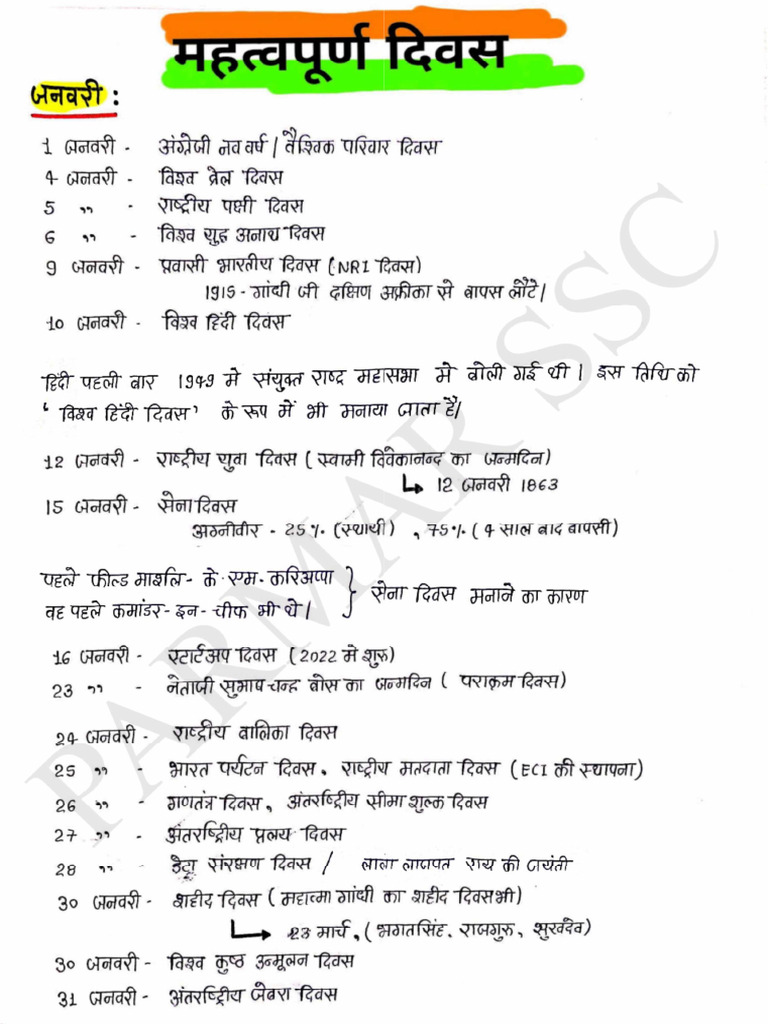 महत्वपूर्ण दिवस
जनवरी :
1 जनवरी - अंग्रेजी नव वर्ष / वैश्विक परिवार दिवस
4 जनवरी - विश्व ब्रेल दिवस
5 ,, - राष्ट्रीय पक्षी दिवस
6 ,, - विश्व युद्ध अनाथ दिवस
9 जनवरी - प्रवासी भारतीय दिवस (NRI दिवस)
1915 - गांधी जी दक्षिण अफ्रीका से वापस लौटे।
10 जनवरी - विश्व हिंदी दिवस
हिंदी पहली बार 1949 मे संयुक्त राष्ट्र महासभा मे बोली गई थी। इस तिथि को
' विश्व हिंदी दिवस ' के रूप में भी मनाया जाता है।
12 जनवरी - राष्ट्रीय युवा दिवस ( स्वामी विवेकानन्द का जन्मदिन)
↳ 12 जनवरी 1863
15 जनवरी - सेना दिवस
अग्नीवीर - 25% (स्थायी) , 75% ( 4 साल बाद वापसी)
पहले फील्ड मार्शल - के. एम. करिअप्पा } सेना दिवस मनाने का कारण
वह पहले कमांडर - इन - चीफ भी थे।
16 जनवरी - स्टार्टअप दिवस (2022 मे शुरू)
23 ,, - नेताजी सुभाष चन्द्र बोस का जन्मदिन ( पराक्रम दिवस)
24 जनवरी - राष्ट्रीय बालिका दिवस
25 ,, - भारत पर्यटन दिवस, राष्ट्रीय मतदाता दिवस (ECI की स्थापना)
26 ,, - गणतंत्र दिवस, अंतराष्ट्रीय सीमा शुल्क दिवस
27 ,, - अंतराष्ट्रीय प्रलय दिवस
28 ,, - डेटा संरक्षण दिवस / लाला लाजपत राय की जयंती
30 जनवरी - शहीद दिवस ( महात्मा गांधी का शहीद दिवस भी)
↳ 23 मार्च, ( भगतसिंह, राजगुरु, सुखदेव)
30 जनवरी - विश्व कुष्ठ उन्मूलन दिवस
31 जनवरी - अंतराष्ट्रीय जेबरा दिवस
PARMAR SSC